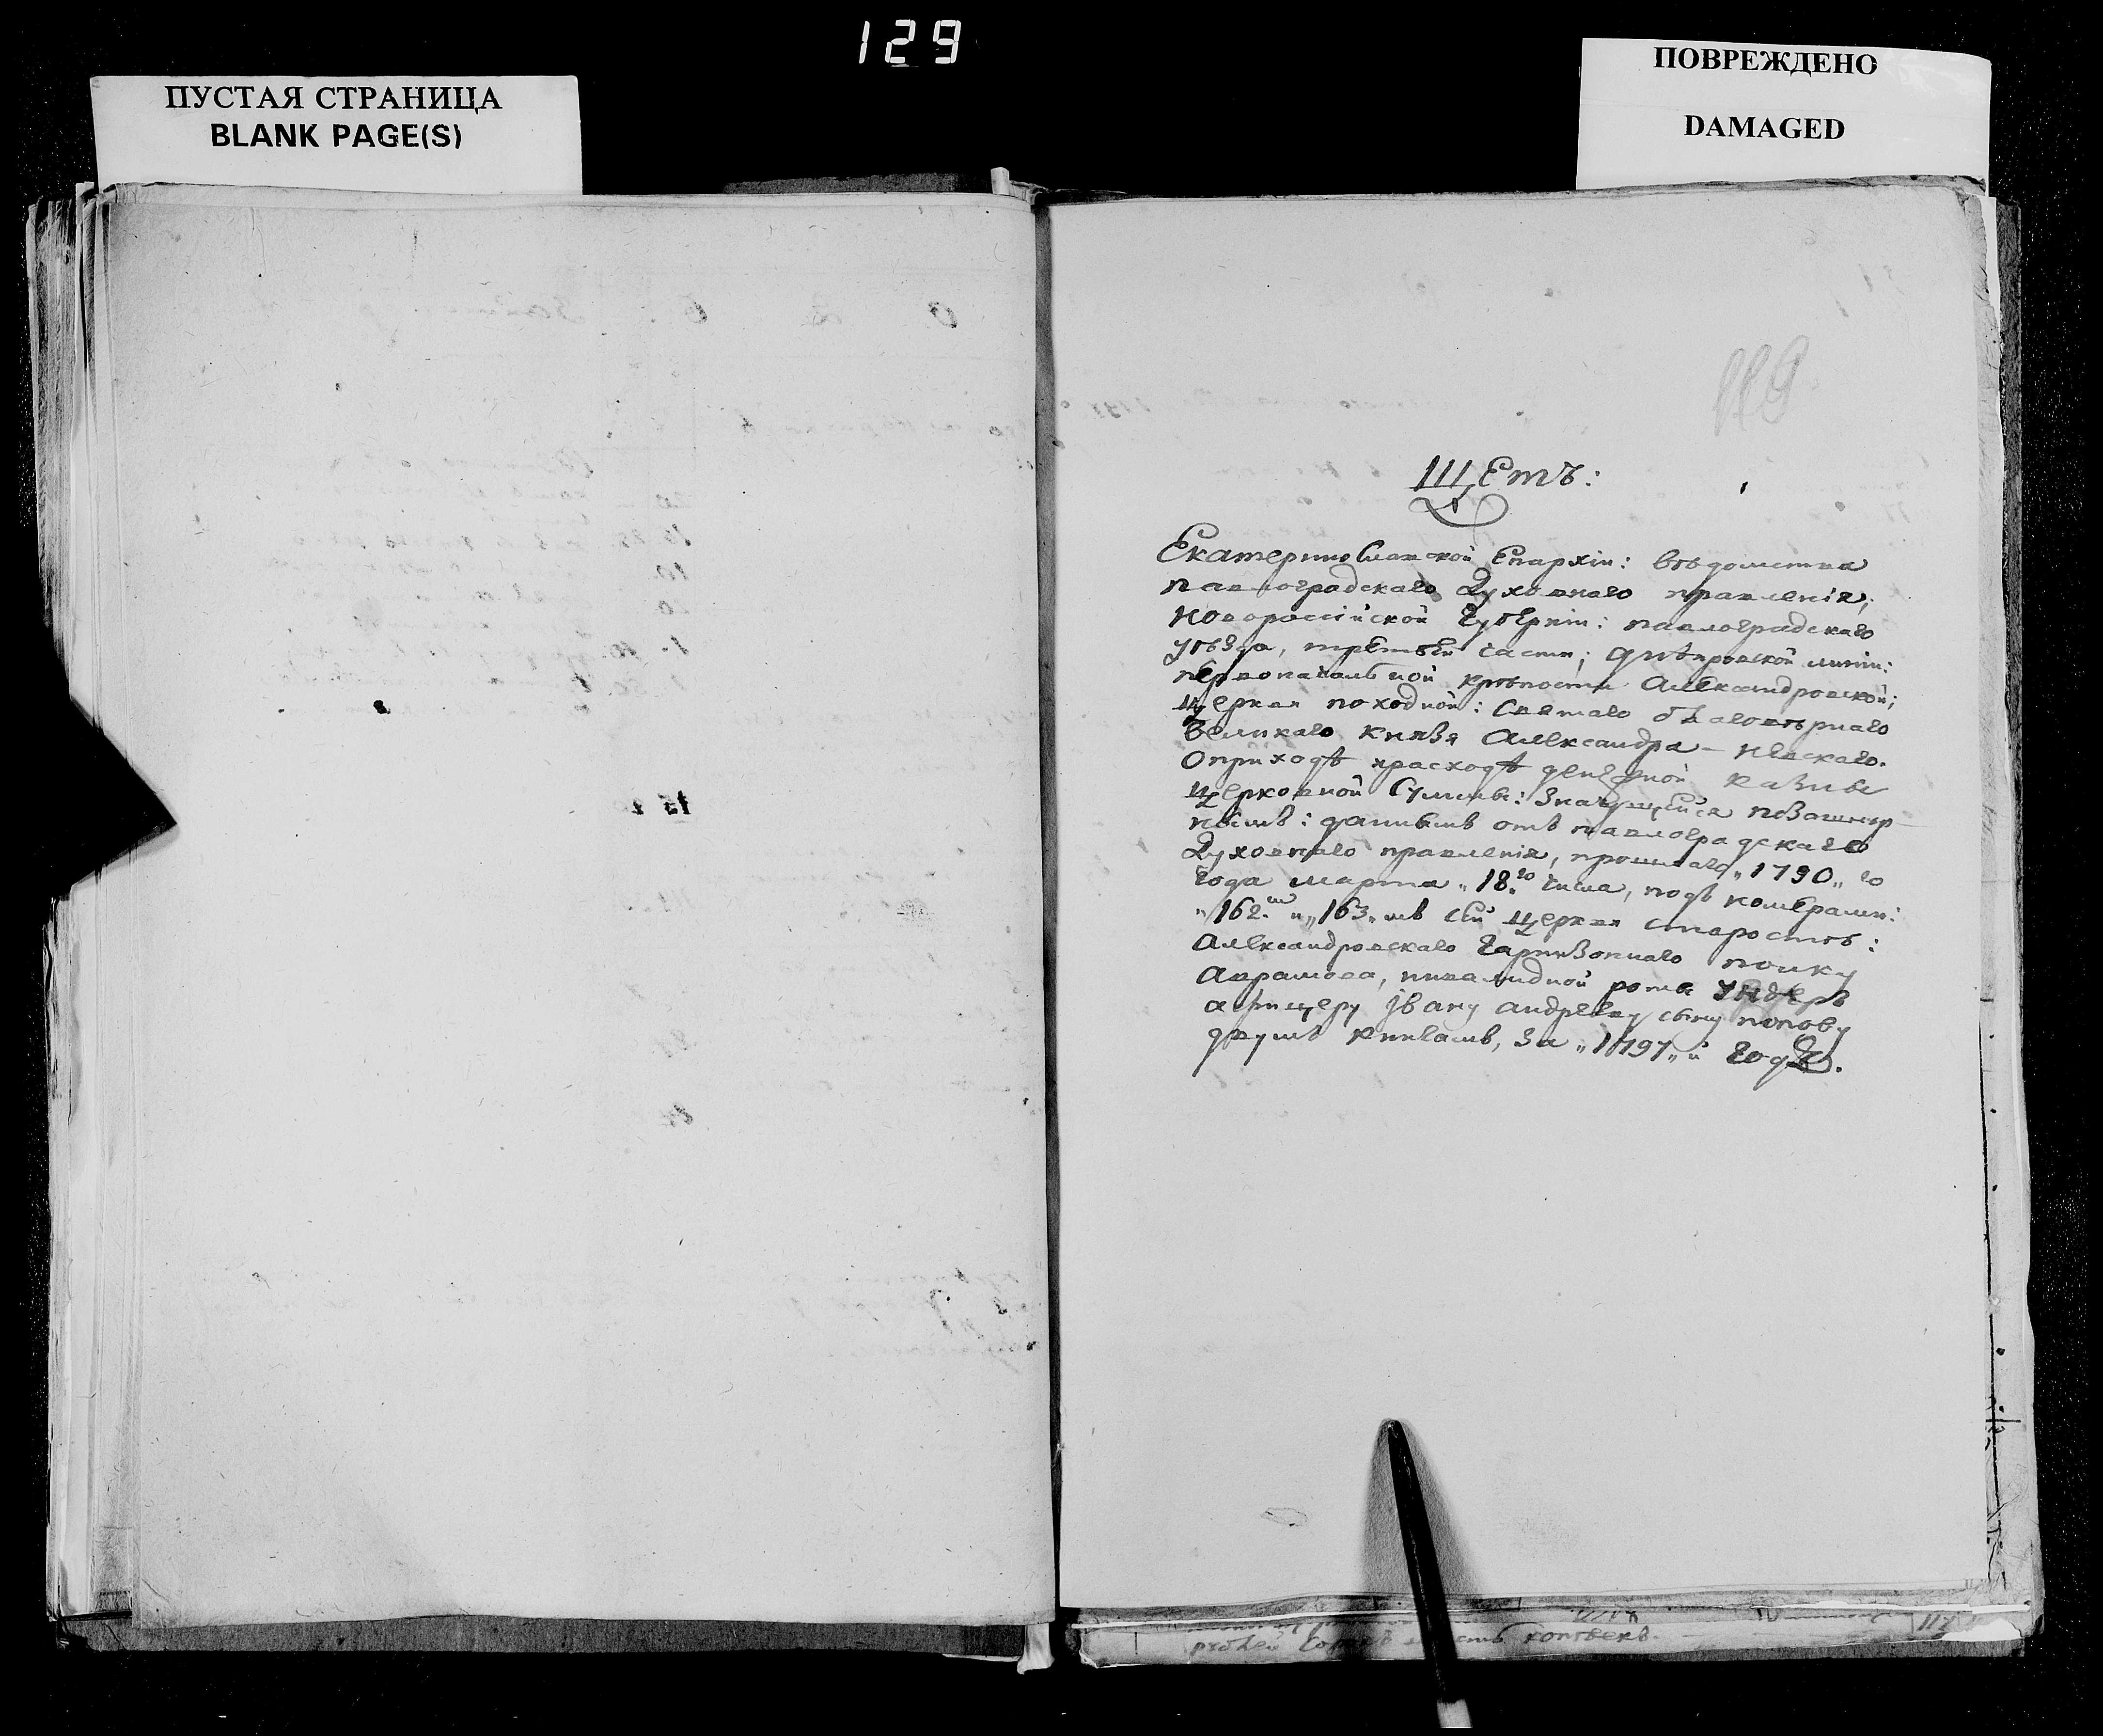 129
ПУСТАЯ СТРАНИЦА
BLANK PAGE(S)
ПОВРЕЖДЕНО
DAMAGED
119
Щетъ:
Екатеринославской Епархіи: вѣдомства
павлоградскаго духовнаго правленія;
новоросс́ійской губерніи: павлоградскаго
уѣзда, третьей части; днѣпровской линіи:
первоначальной крѣпости Александровской;
церкви походной: святаго благовѣрнаго
великаго князя Александра – невскаго.
О приходѣ ирасходѣ денежной казны
церковной суммы: значущейся позашнур
нымъ: даннымъ отъ павлоградскаго
духовнаго правленія, прошлаго „1790„ го
года марта „18.го числа, подъ номерами:
„162.мъ и „163„мъ сей церкви старостѣ:
Александровскаго гарнизоннаго полку
Аврамова, инвалидной роты ундеръ
афицеру івану андрееву сыну попову
двумъ книгамъ, за „1797„й годъ.
рублей копѣекъ.